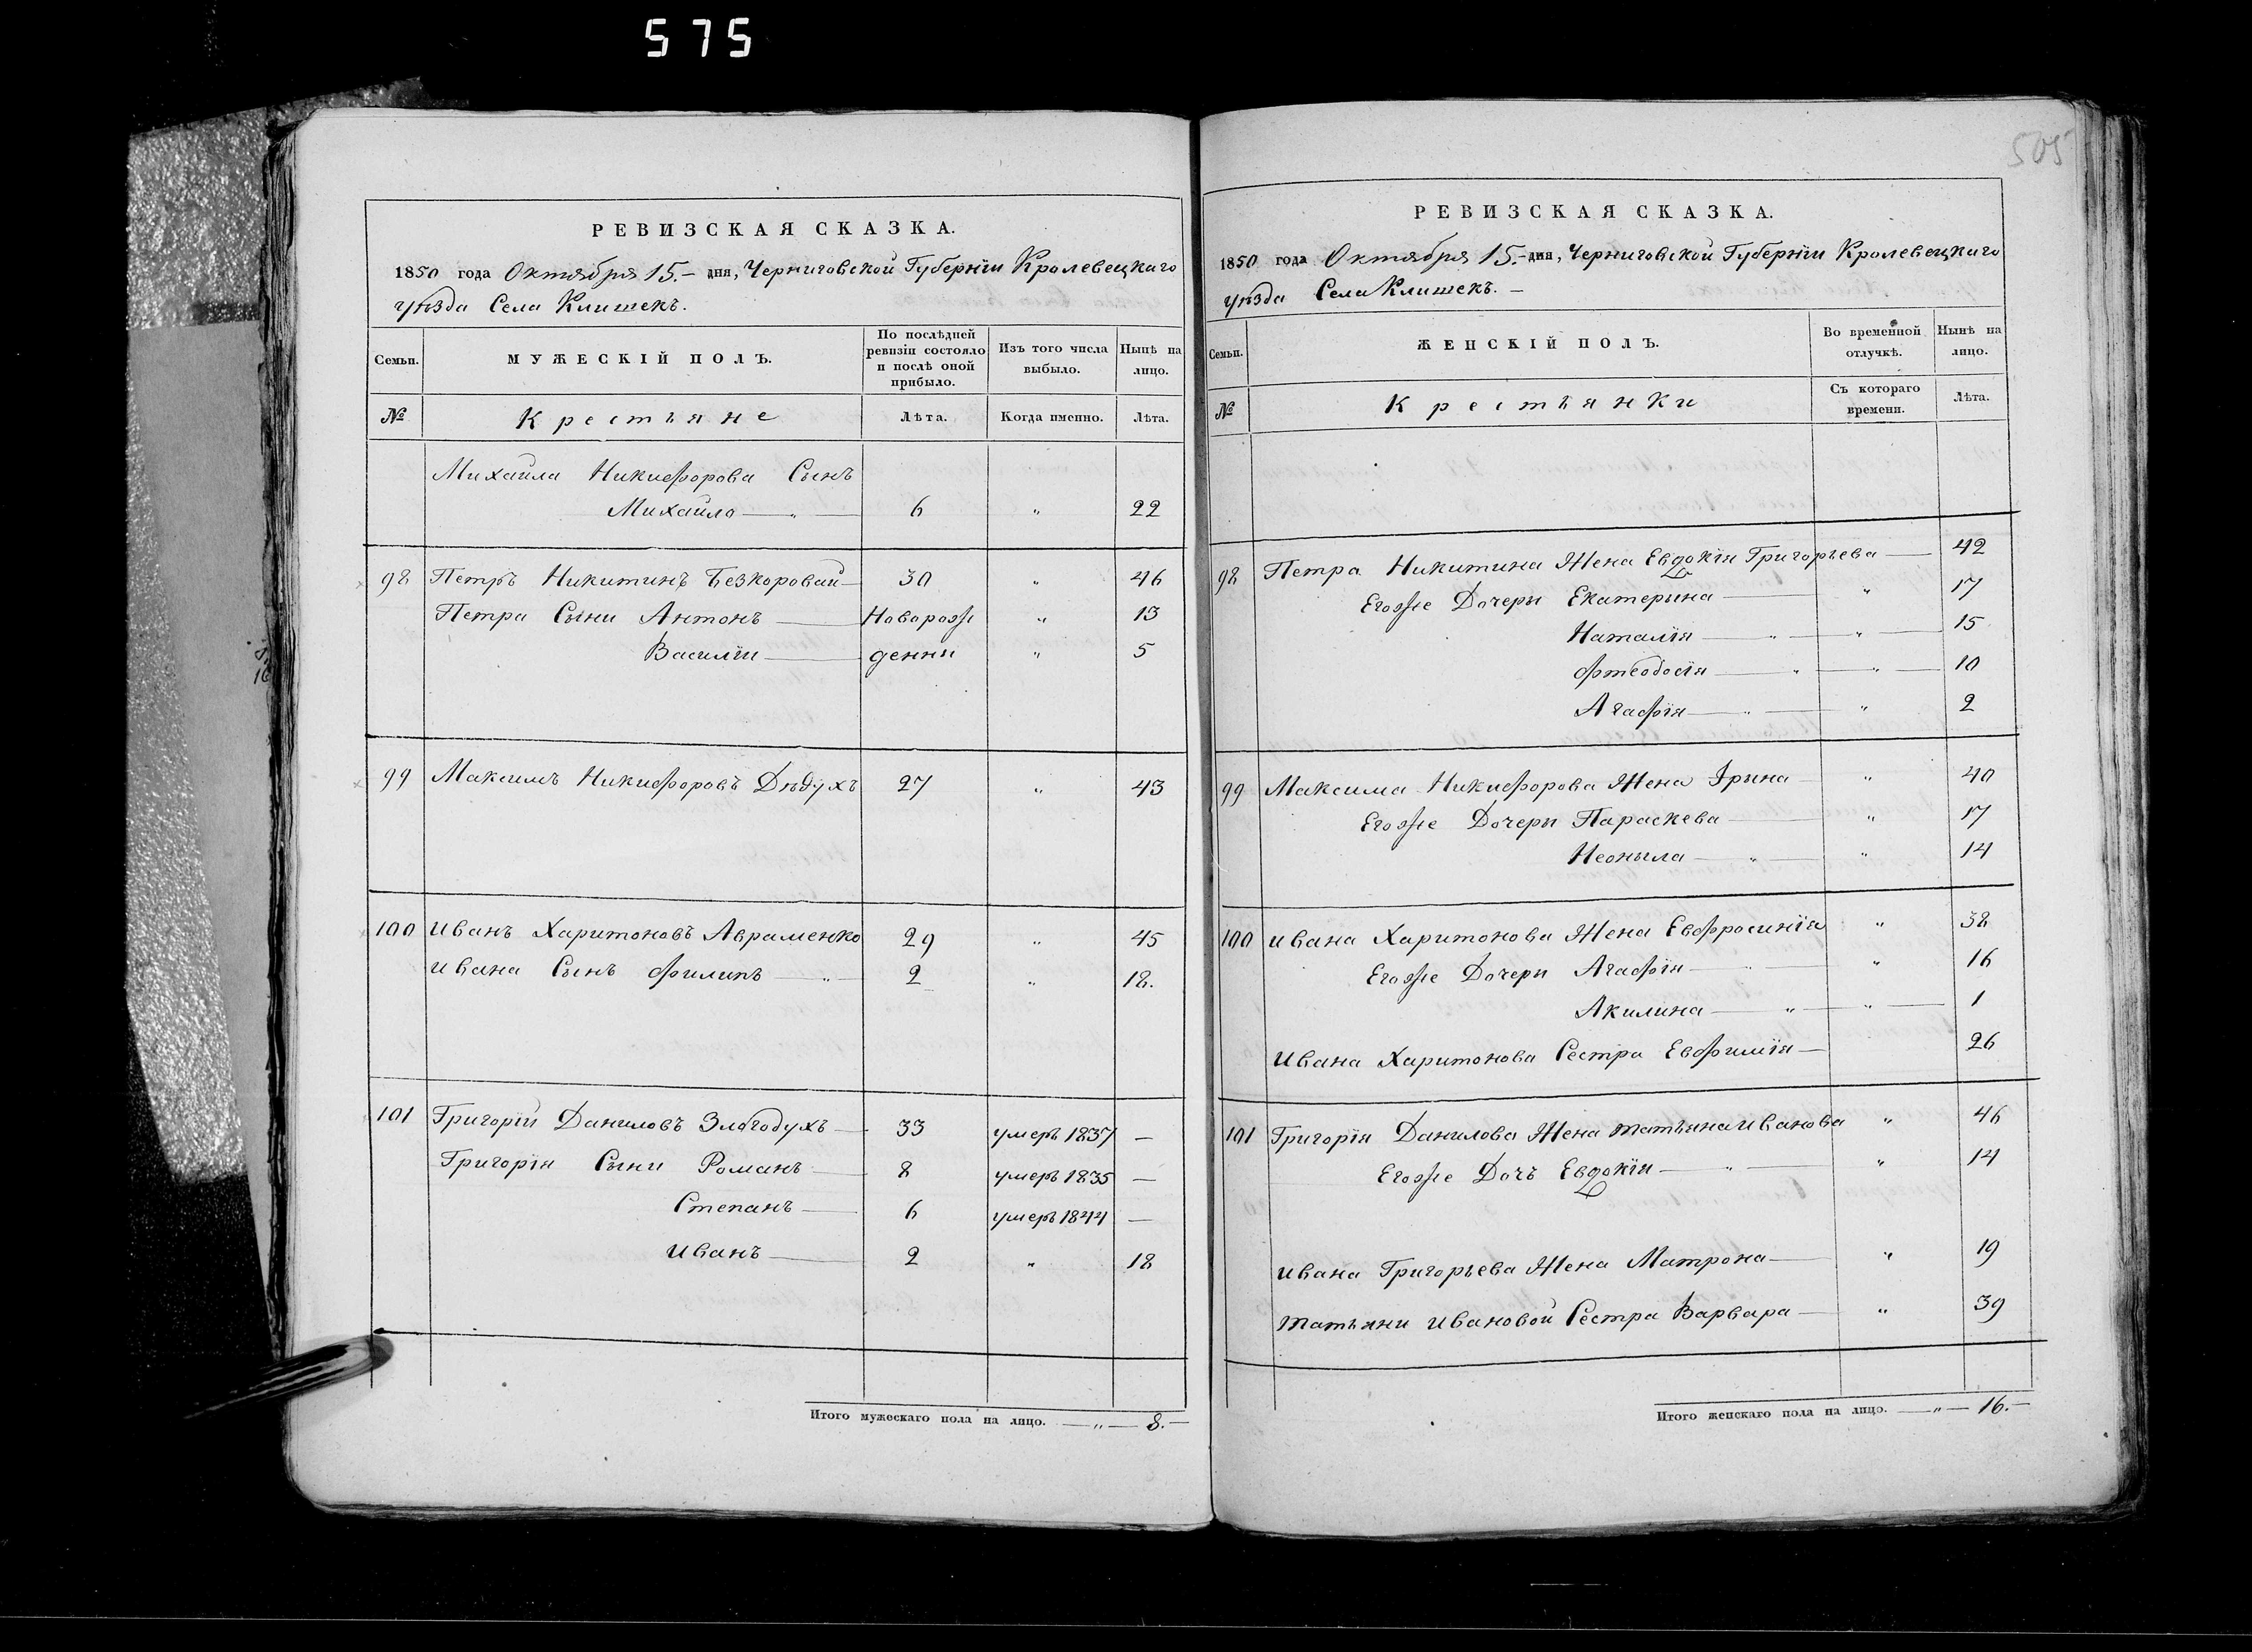 575
505
РЕВИЗСКАЯ СКАЗКА.
1850 года Октября 15.- дня, Черниговской Губерніи Кролевецкаго
уѣзда Села Клишекъ.
Семьи. МУЖЕСКІЙ ПОЛЪ. По послѣдней ревизіи состояло и послѣ оной прибыло. Изъ того числа выбыло. Нынѣ на лицо.
№ Крестьяне Лѣта. Когда именно. Лѣта.
Михайла Никифорова Сынъ
Михайло — „ — 6 „ 22
98 Петръ Никитинъ Безкоровай — 30 „ 46
Петра Сыни Антонъ — Новорож „ 13
Василій — денни „ 5
99 Максимъ Никифоровъ Дѣдухъ 27 „ 43
100 Иванъ Харитоновъ Авраменко 29 „ 45
Ивана Сынъ Филипъ — „ 2 „ 18.
101 Григорій Даниловъ Злогодухъ — 33 умеръ 1837 —
Григорія Сыни Романъ — 8 умеръ 1835 —
Степанъ — 6 умеръ 1844 —
Иванъ — 2 „ 18
Итого мужескаго пола на лицо. — „ — 8.—
РЕВИЗСКАЯ СКАЗКА.
1850 года Октября 15.- дня, Черниговской Губерніи Кролевецкаго
уѣзда Села Клишекъ. —
Семьи. ЖЕНСКІЙ ПОЛЪ. Во временной отлучкѣ. Нынѣ на лицо.
№ Крестьянки Съ котораго времени. Лѣта.
98 Петра Никитина Жена Евдокія Григорьева — 42
Егоже Дочеры Екатерына — „ 17
Наталія — „ — „ — 15
Фтеодосія — „ — „ — 10
Агафія — „ — „ 2
99 Максима Никифорова Жена Ірина — „ 40
Егоже Дочеры Параскева — „ 17
Неоныла — „ — „ 14
100 Ивана Харитонова Жена Евфросинія „ 38
Егоже Дочеры Агафія — „ — „ 16
Акилина — „ — „ — 1
Ивана Харитонова Сестра Евфимія — 26
101 Григорія Данилова Жена Татьяна Иванова „ 46
Егоже Дочъ Евдокія — „ — „ 14
Ивана Григорьева Жена Матрона — „ 19
Татьяни Ивановой Сестра Варвара — „ 39
Итого женскаго пола на лицо. — „ — 16.—